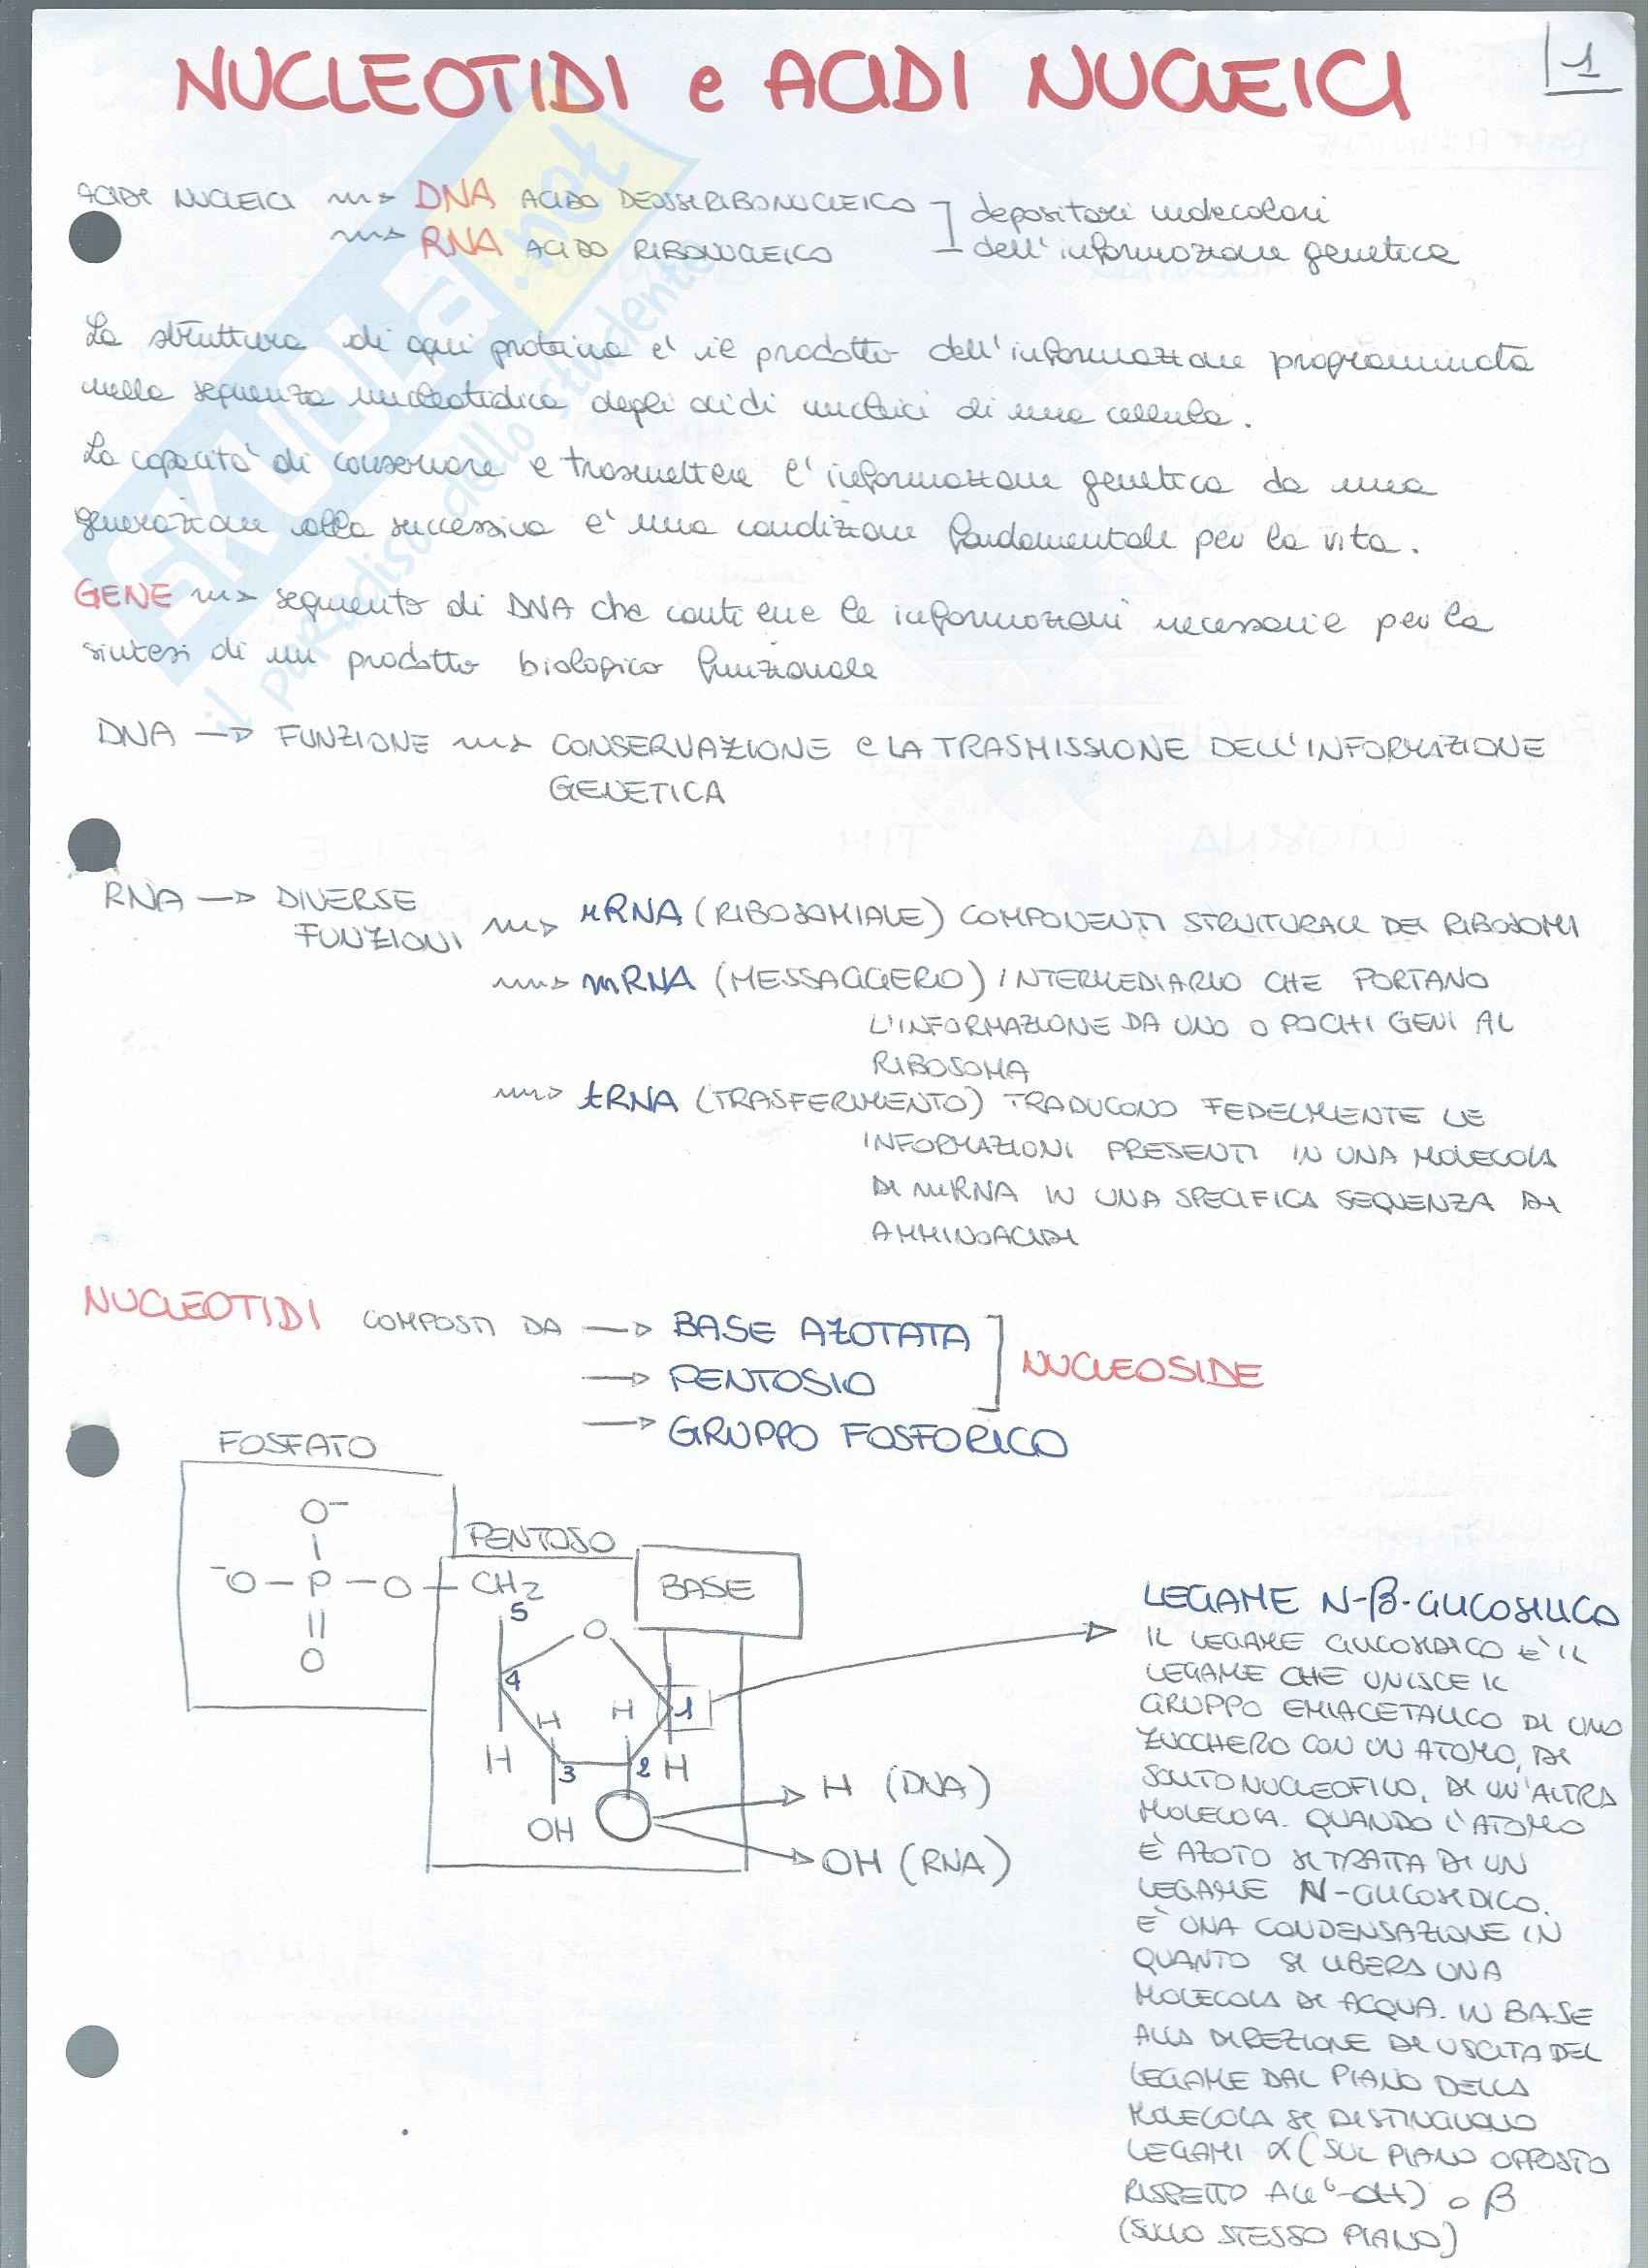 NUCLEOTIDI e ACIDI NUCLEICI
1
ACIDI NUCLEICI DNA ACIDO DEOSSIRIBONUCLEICO
RNA ACIDO RIBONUCLEICO
depositari molecolari
dell'informazione genetica
La struttura di ogni proteina e' il prodotto dell'informazione programmata
nella sequenza nucleotidica degli acidi nucleici di una cellula.
La capacita' di conservare e trasmettere l'informazione genetica da una
generazione alla successiva e' una condizione fondamentale per la vita.
GENE segmento di DNA che contiene le informazioni necessarie per la
sintesi di un prodotto biologico funzionale
DNA → FUNZIONE CONSERVAZIONE e LA TRASMISSIONE DELL'INFORMAZIONE
GENETICA
RNA → DIVERSE
FUNZIONI
rRNA (RIBOSOMIALE) COMPONENTI STRUTTURALI DEI RIBOSOMI
mRNA (MESSAGGERO) INTERMEDIARIO CHE PORTANO
L'INFORMAZIONE DA UNO O POCHI GENI AL
RIBOSOMA
tRNA (TRASFERIMENTO) TRADUCONO FEDELMENTE LE
INFORMAZIONI PRESENTI IN UNA MOLECOLA
DI mRNA IN UNA SPECIFICA SEQUENZA DI
AMMINOACIDI
NUCLEOTIDI COMPOSTI DA → BASE AZOTATA
→ PENTOSIO
→ GRUPPO FOSFORICO
NUCLEOSIDE
FOSFATO
O⁻
⁻O – P – O – CH2
O
PENTOSO
BASE
5
O
4
1
H
H
H
3
2
H
OH
H (DNA)
OH (RNA)
LEGAME N-β-GLICOSILICO
IL LEGAME GLICOSIDICO E' IL
LEGAME CHE UNISCE IL
GRUPPO EMIACETALICO DI UNO
ZUCCHERO CON UN ATOMO, DI
SOLITO NUCLEOFILO, DI UN'ALTRA
MOLECOLA. QUANDO L'ATOMO
È AZOTO SI TRATTA DI UN
LEGAME N-GLICOSIDICO.
E' UNA CONDENSAZIONE IN
QUANTO SI LIBERA UNA
MOLECOLA DI ACQUA. IN BASE
ALLA DIREZIONE DI USCITA DEL
LEGAME DAL PIANO DELLA
MOLECOLA SI DISTINGUONO
LEGAMI α (SUL PIANO OPPOSTO
RISPETTO ALL'-OH) o β
(SULLO STESSO PIANO)
SKUOLA.net
il paradiso dello studente